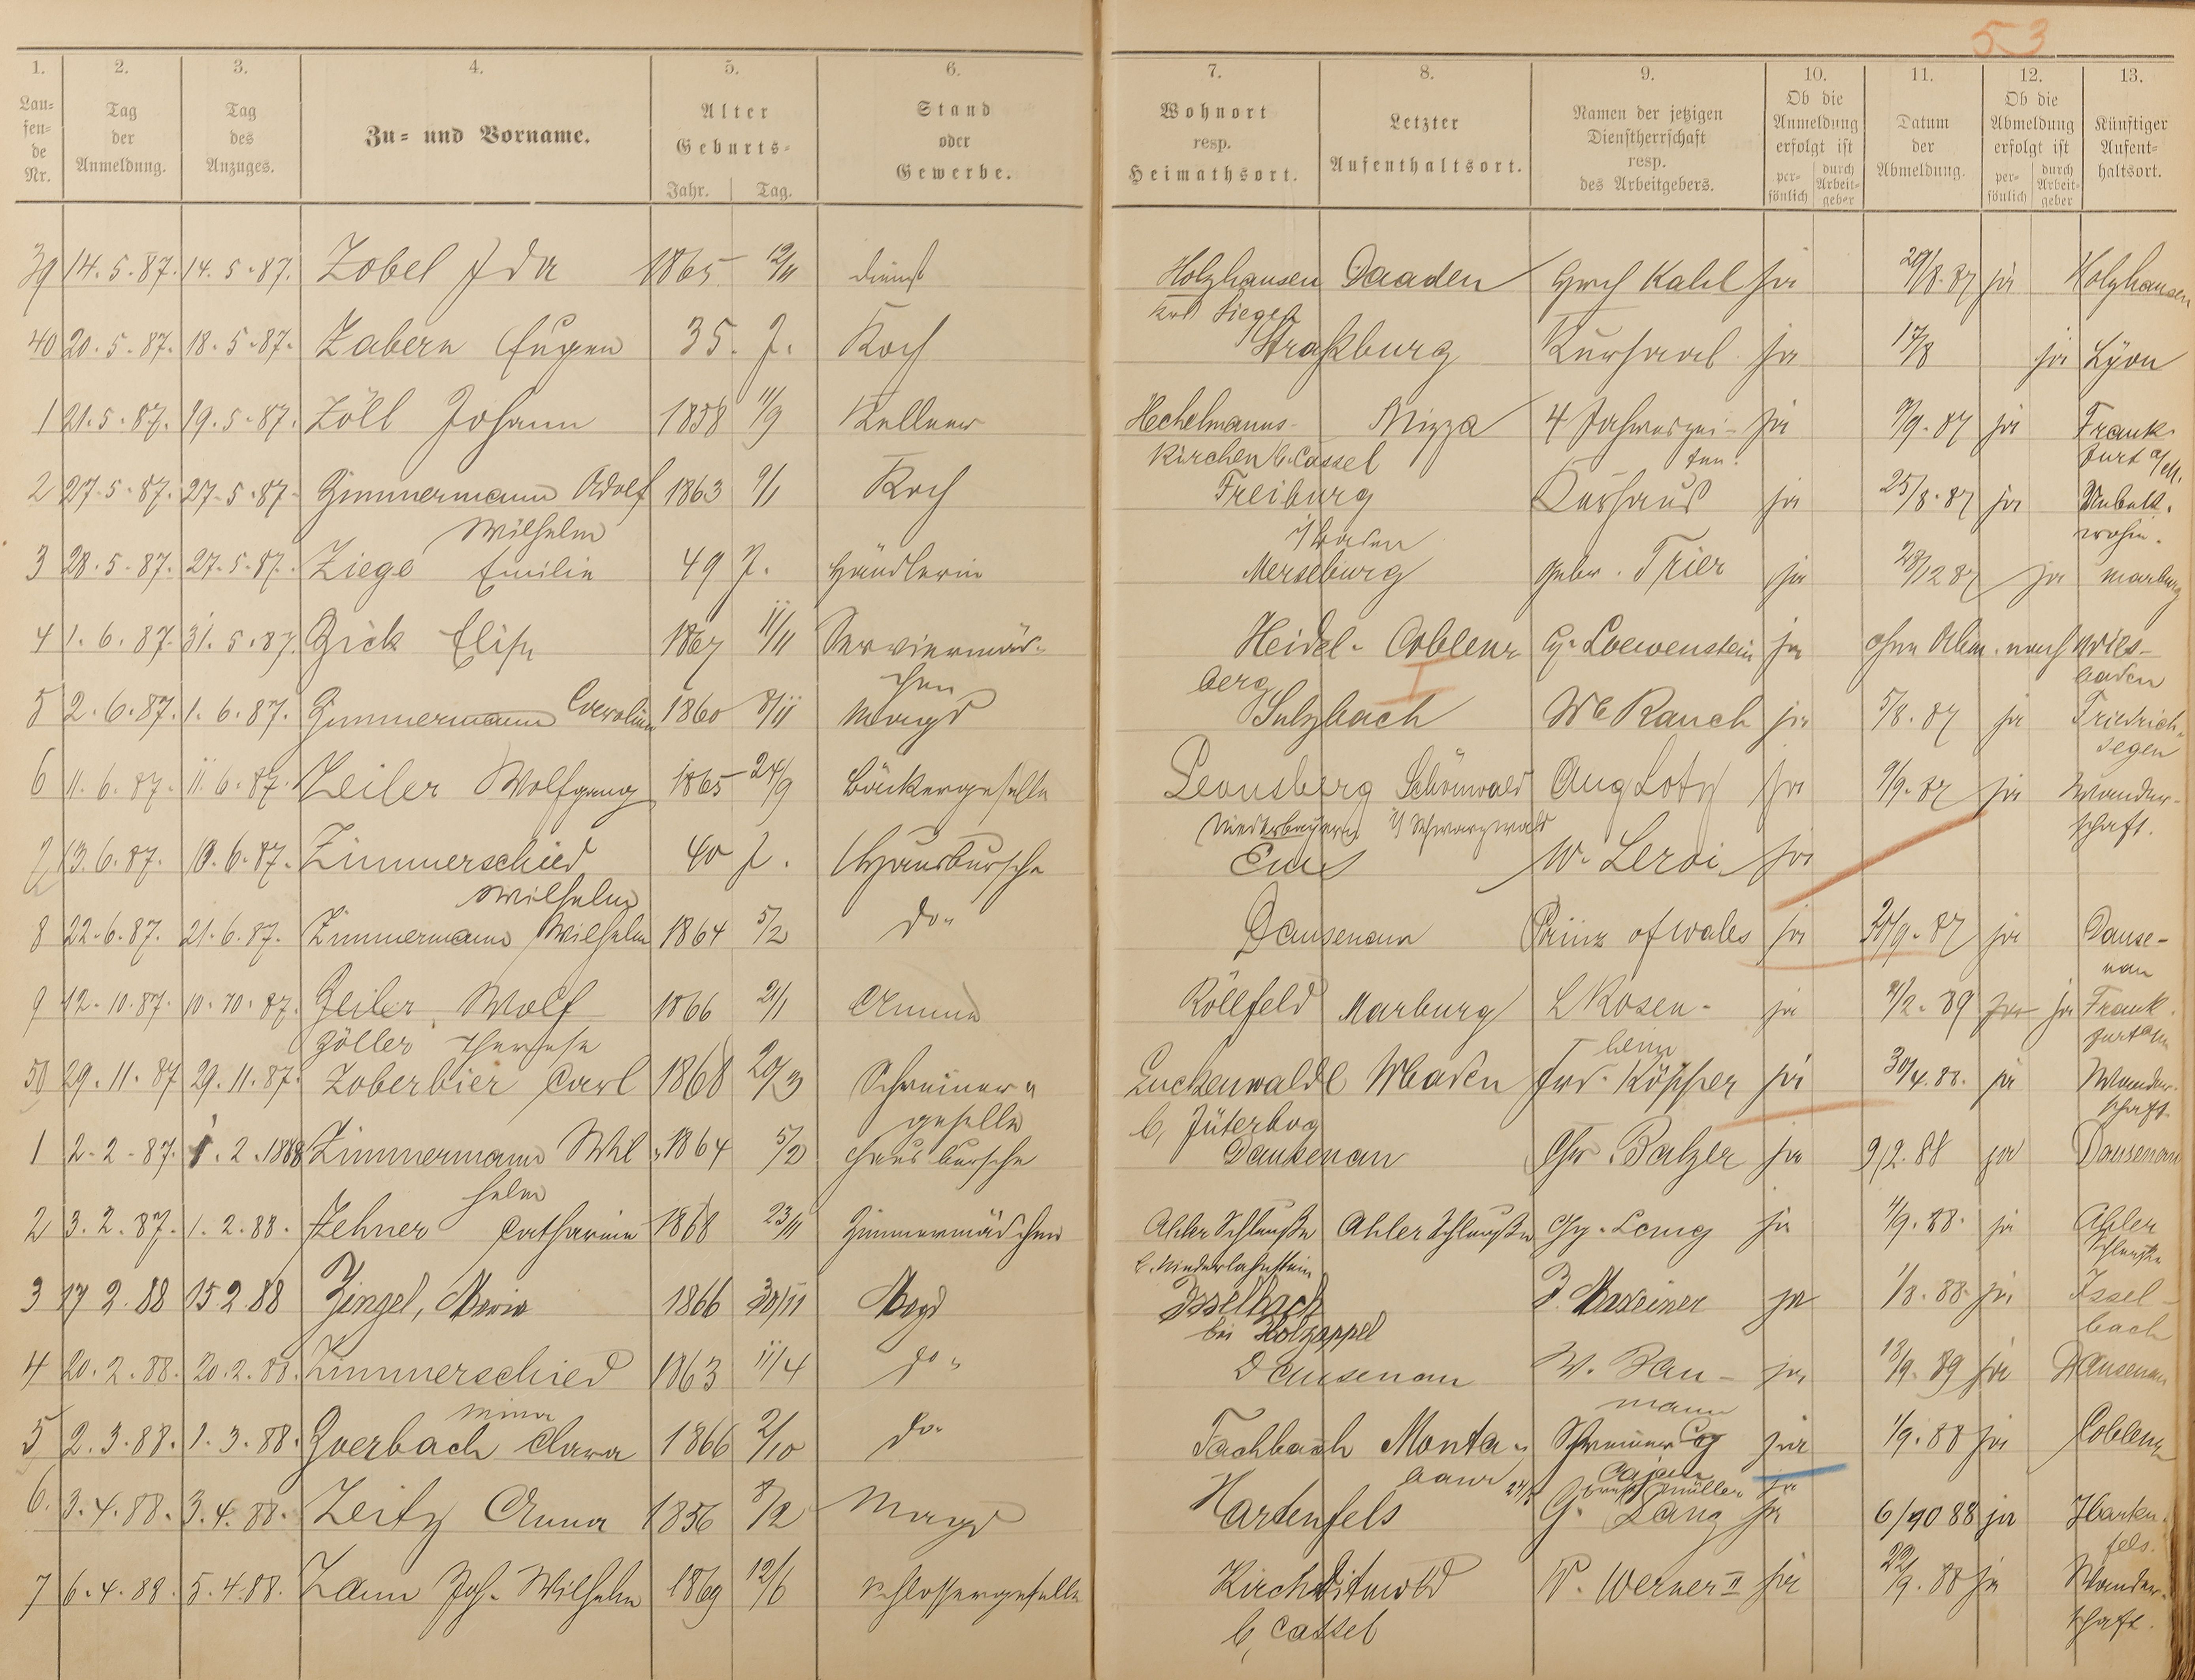 53
1. 2. 3. 4. 5. 6. 7. 8. 9. 10. 11. 12. 13.
Lau-
fen-
de
Nr.
Tag
der
Anmeldung.
Tag
des
Anzuges.
Zu- und Vorname.
Alter
Geburts-
Jahr. Tag.
Stand
oder
Gewerbe.
Wohnort
resp.
Heimathsort.
Letzter
Aufenthaltsort.
Namen der jetzigen
Dienstherrschaft
resp.
des Arbeitgebers.
Ob die
Anmeldung
erfolgt ist
per-
sönlich
durch
Arbeit-
geber
Datum
der
Abmeldung.
Ob die
Abmeldung
erfolgt ist
per-
sönlich
durch
Arbeit-
geber
Künftiger
Aufent-
haltsort.
39 14.5.87. 14.5.87. Zobel Ida 1865 12/11 Holzhausen Daaden Kahl ja 29/8.87 ja Holzhausen
Siegen
40 20.5.87. 18.5.87. Zabern Eugen 35. J. Koch Straßburg Kursaal ja 17/8 ja Lyon
1 21.5.87. 19.5.87. Zöll Johann 1858 11/9 Kellner Hechelmanns- Nizza 4 Jahreszei- ja 9/9.87 ja Frank-
kirchen b. Cassel ten. furt a/M.
2 27.5.87. 27.5.87. Zimmermann Adolf 1863 9/1 Koch Freiburg Curhaus ja 25/8.87 ja Unbek.
Wilhelm i/Baden wohin.
3 28.5.87. 27.5.87. Ziege Emilie 49 J. Händlerin Merseburg Gebr. Trier ja 28/12 87 ja Marburg
4 1.6.87. 31.5.87. Zick Elise 1867 11/11 Serviermäd- Heidel- Coblenz G. Loewenstein ja ohne Abm. nach Wies-
chen berg baden
5 2.6.87. 1.6.87. Zimmermann Caroline 1860 8/11 Magd Sulzbach We Rauch ja 5/8.87 ja Friedrich-
segen
6 11.6.87. 11.6.87. Zeiler Wolfgang 1865 24/9 Bäckergeselle Leonsberg Schönwald Aug Lotz ja 9/9.87 ja Wander-
Niederbayern i/Schwarzwald schaft.
7 13.6.87. 10.6.87. Zimmerschied 40 J. Hausbursche Ems W. Leroi ja
Wilhelm
8 22.6.87. 21.6.87. Zimmermann Wilhelm 1864 5/2 do. Dausenau Prinz of wales ja 30/9.87 ja Dause-
nau
9 12.10.87. 10.10.87. Zeiler Wolf 1866 21/1 Röllfeld Marburg L Rosen- ja 2/2.89 ja ja Frank-
Zöller Therese heim furt a/M
50 29.11.87 29.11.87. Zoberbier Carl 1868 20/3 Schreiner- Luckenwalde Wbaden Frd. Köpper ja 30/4.88. ja Wander-
geselle b. Jüterbog schaft.
1 2.2.87. 1.2.1888 Zimmermann Wil- 1864 5/2 Hausbursche Dausenau Chr. Balzer ja 9/2.88 ja Dausenau
helm
2 3.2.87. 1.2.88. Zehner Catharine 1868 23/11 Zimmermädchen Ahler Schleuße Ahler Schleuße Gg. Lang ja 1/9.88. ja Ahler
b. Niederlahnstein Schleuße
3 17 2.88 15 2.88 Zingel, Maria 1866 30/11 Magd Isselbach J. Maxeiner ja 1/8.88. ja Issel-
bei Holzappel bach
4 20.2.88. 20.2.88. Zimmerschied 1863 11/4 do. Dausenau W. Bau- ja 18/9.89 ja Dausenau
Mina mann
5 2.3.88. 1.3.88. Zverbach Clara 1866 2/10 do. Fachbach Monta- Schreiner ja 1/9.88 ja Coblenz
baur ja
6. 3.4.88. 3.4.88. Zeitz Anna 1856 8/2 Magd Hartenfels G. Lang ja 6/10 88 ja Harten-
fels.
7 6.4.88. 5.4.88. Zann Joh. Wilhelm 1869 12/6 Schlossergeselle Kirchditmold W. Werner II ja 22/9.88 ja Wander-
b. Cassel schaft.